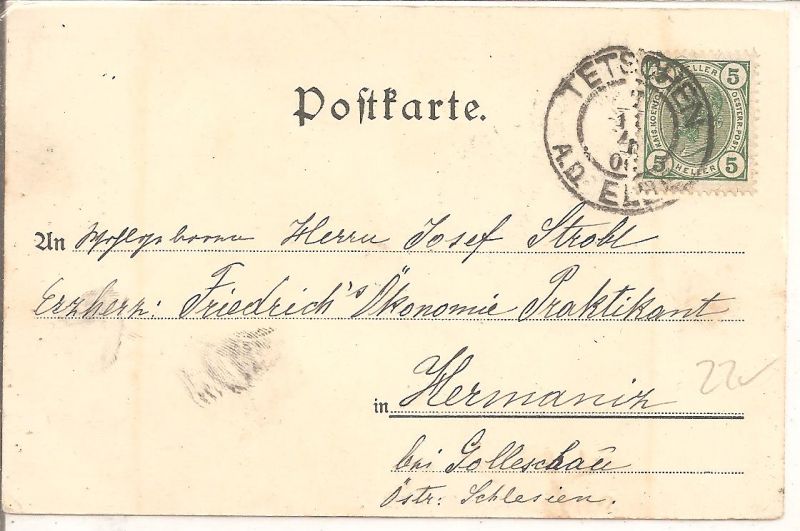 Postkarte.
TETSCHEN
A.D. ELBE
5 HELLER 5
KAIS. KOENIGL. OESTERR. POST.
5 HELLER 5
An Wohlgeboren Herrn Josef Strobl
Erzherz: Friedrich's Ökonomie Praktikant
in Hermaniz
bei Golleschau
Östr: Schlesien.
22